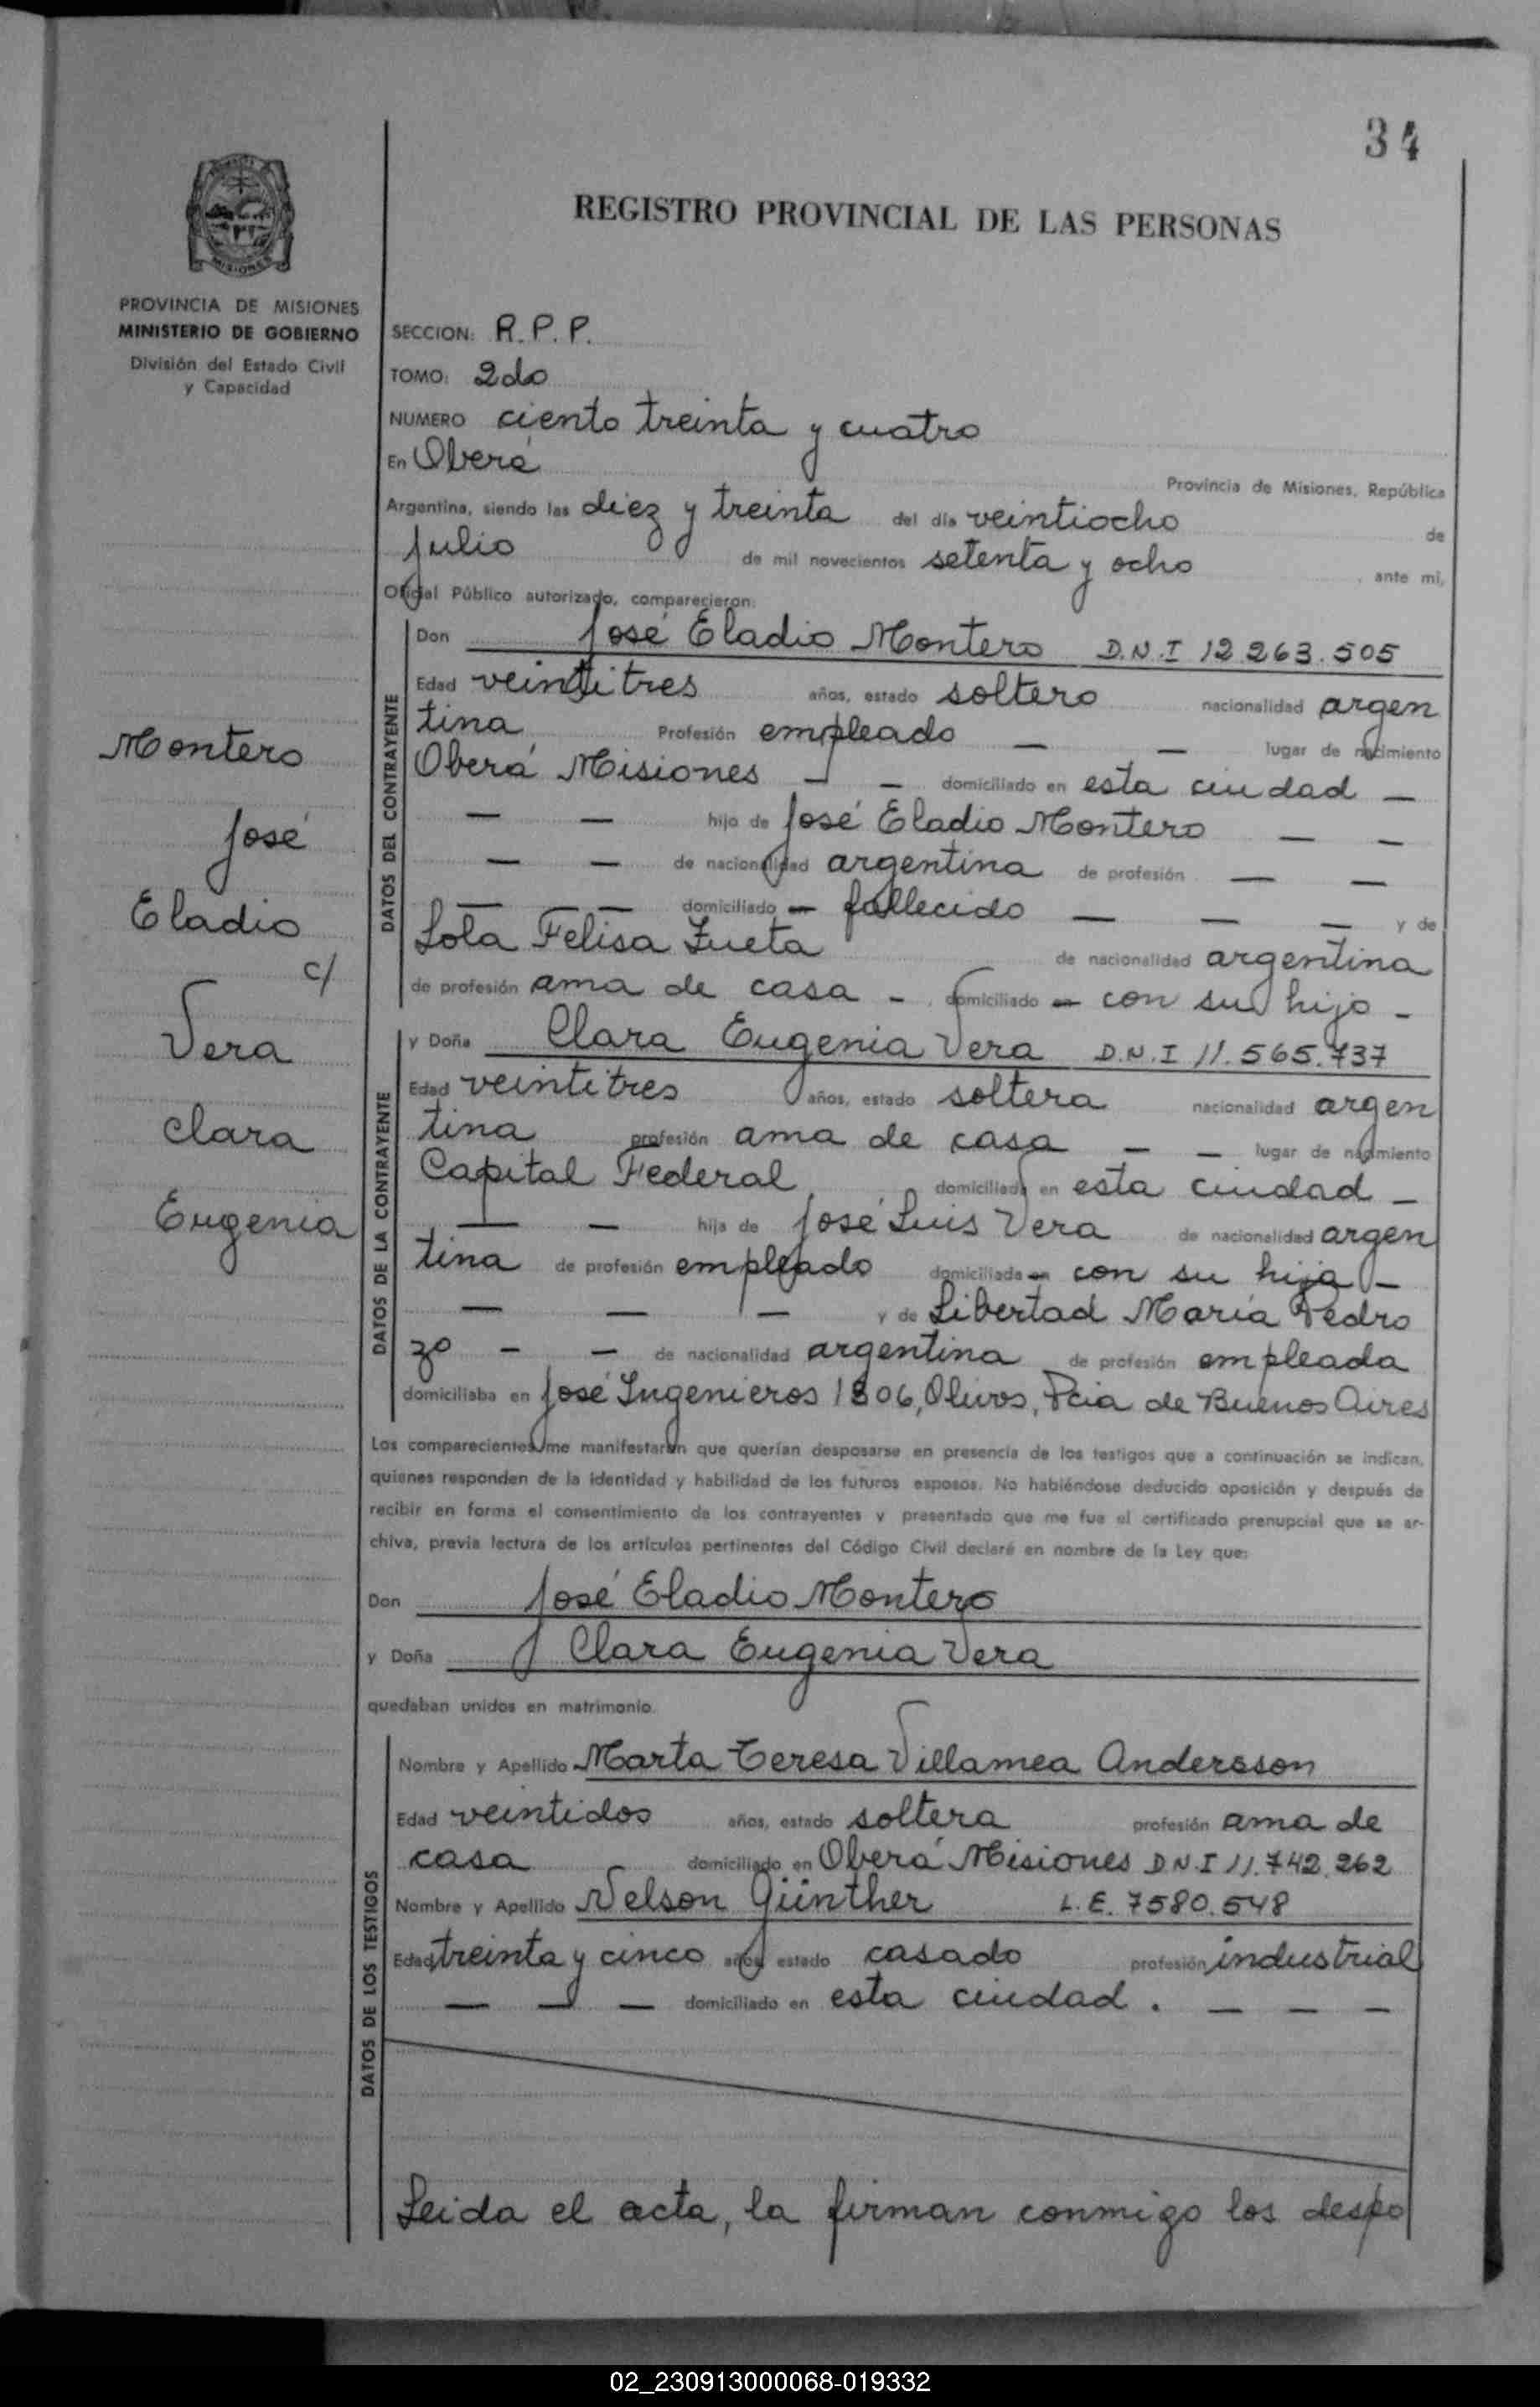 34
REGISTRO PROVINCIAL DE LAS PERSONAS
MISIONES
PROVINCIA DE MISIONES
MINISTERIO DE GOBIERNO
División del Estado Civil
y Capacidad
SECCION: R.P.P.
TOMO: 2do
NUMERO ciento treinta y cuatro
En Oberá
Provincia de Misiones, República
Argentina, siendo las diez y treinta del día veintiocho de
julio de mil novecientos setenta y ocho, ante mi,
Oficial Público autorizado, comparecieron:
DATOS DEL CONTRAYENTE
Don José Eladio Montero D.N.I 12.263.505
Edad veintitres años, estado soltero nacionalidad argen
tina Profesión empleado — — lugar de nacimiento
Oberá Misiones — — domiciliado en esta ciudad —
— — hijo de José Eladio Montero — —
— — de nacionalidad argentina de profesión — —
— — domiciliado — fallecido — — — y de
Lola Felisa Zueta de nacionalidad argentina
de profesión ama de casa — domiciliado — con su hijo —
Montero
José
Eladio
c/
Vera
Clara
Eugenia
DATOS DE LA CONTRAYENTE
y Doña Clara Eugenia Vera D.N.I 11.565.737
Edad veintitres años, estado soltera nacionalidad argen
tina profesión ama de casa — — lugar de nacimiento
Capital Federal domiciliada en esta ciudad —
— — hija de José Luis Vera de nacionalidad argen
tina de profesión empleado domiciliada en con su hija —
— — — y de Libertad María Pedro
zo — — de nacionalidad argentina de profesión empleada
domiciliaba en José Ingenieros 1806, Olivos, Pcia de Buenos Aires
Los comparecientes me manifestaron que querían desposarse en presencia de los testigos que a continuación se indican,
quienes responden de la identidad y habilidad de los futuros esposos. No habiéndose deducido oposición y después de
recibir en forma el consentimiento de los contrayentes y presentado que me fue el certificado prenupcial que se ar-
chiva, previa lectura de los artículos pertinentes del Código Civil declaré en nombre de la Ley que:
Don José Eladio Montero
y Doña Clara Eugenia Vera
quedaban unidos en matrimonio.
DATOS DE LOS TESTIGOS
Nombre y Apellido Marta Teresa Villamea Andersson
Edad veintidos años, estado soltera profesión ama de
casa domiciliado en Oberá Misiones D.N.I 11.742.262
Nombre y Apellido Nelson Günther L.E. 7580.548
Edad treinta y cinco años estado casado profesión industrial
— — — domiciliado en esta ciudad. — — —
Leida el acta, la firman conmigo los despo
02_230913000068-019332